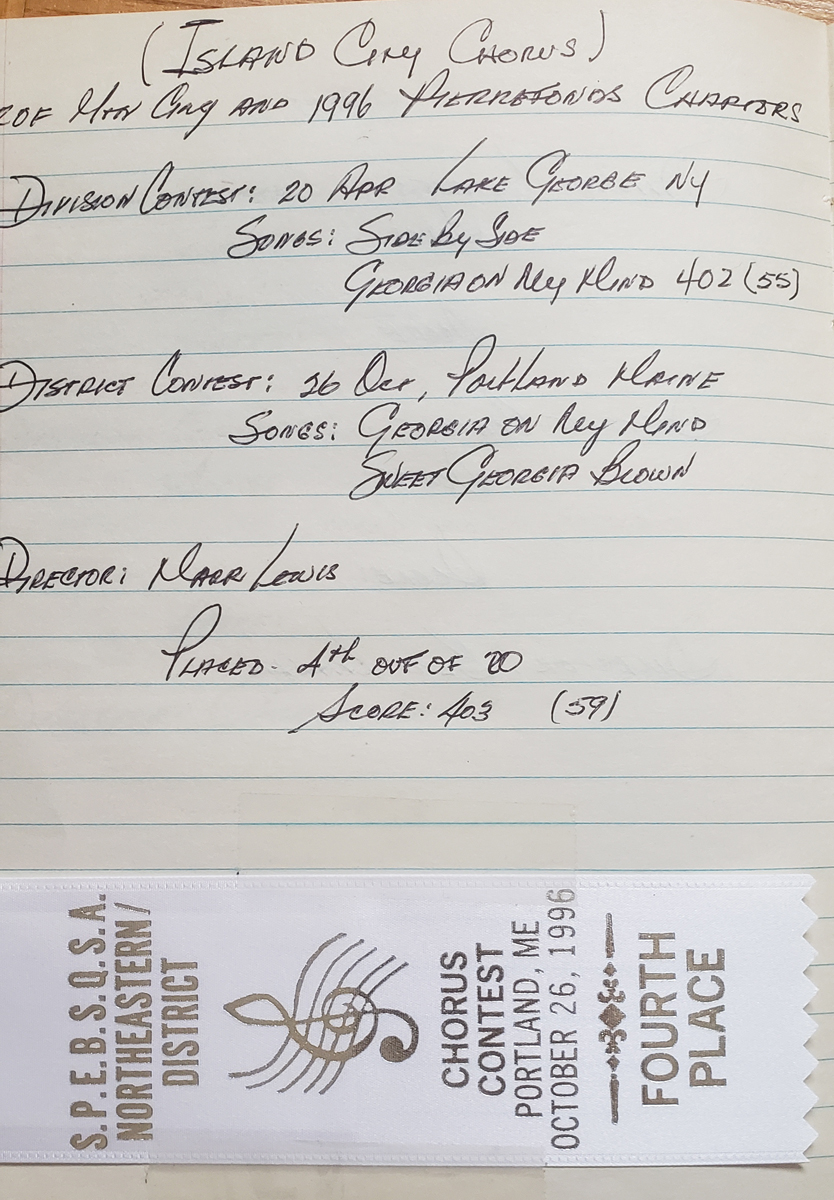 (ISLAND CITY CHORUS)
AND 1996 PIERREFONDS CHARTERS
DIVISION CONTEST: 20 APR LAKE GEORGE NY
SONGS: SIDE BY SIDE
GEORGIA ON MY MIND 402 (55)
DISTRICT CONTEST: 26 OCT, PORTLAND MAINE
SONGS: GEORGIA ON MY MIND
SWEET GEORGIA BROWN
DIRECTOR: MARK LEWIS
PLACED- 4th OUT OF 20
SCORE: 403 (59)
S.P.E.B.S.Q.S.A.
NORTHEASTERN/
DISTRICT
CHORUS
CONTEST
PORTLAND, ME
OCTOBER 26, 1996
FOURTH
PLACE